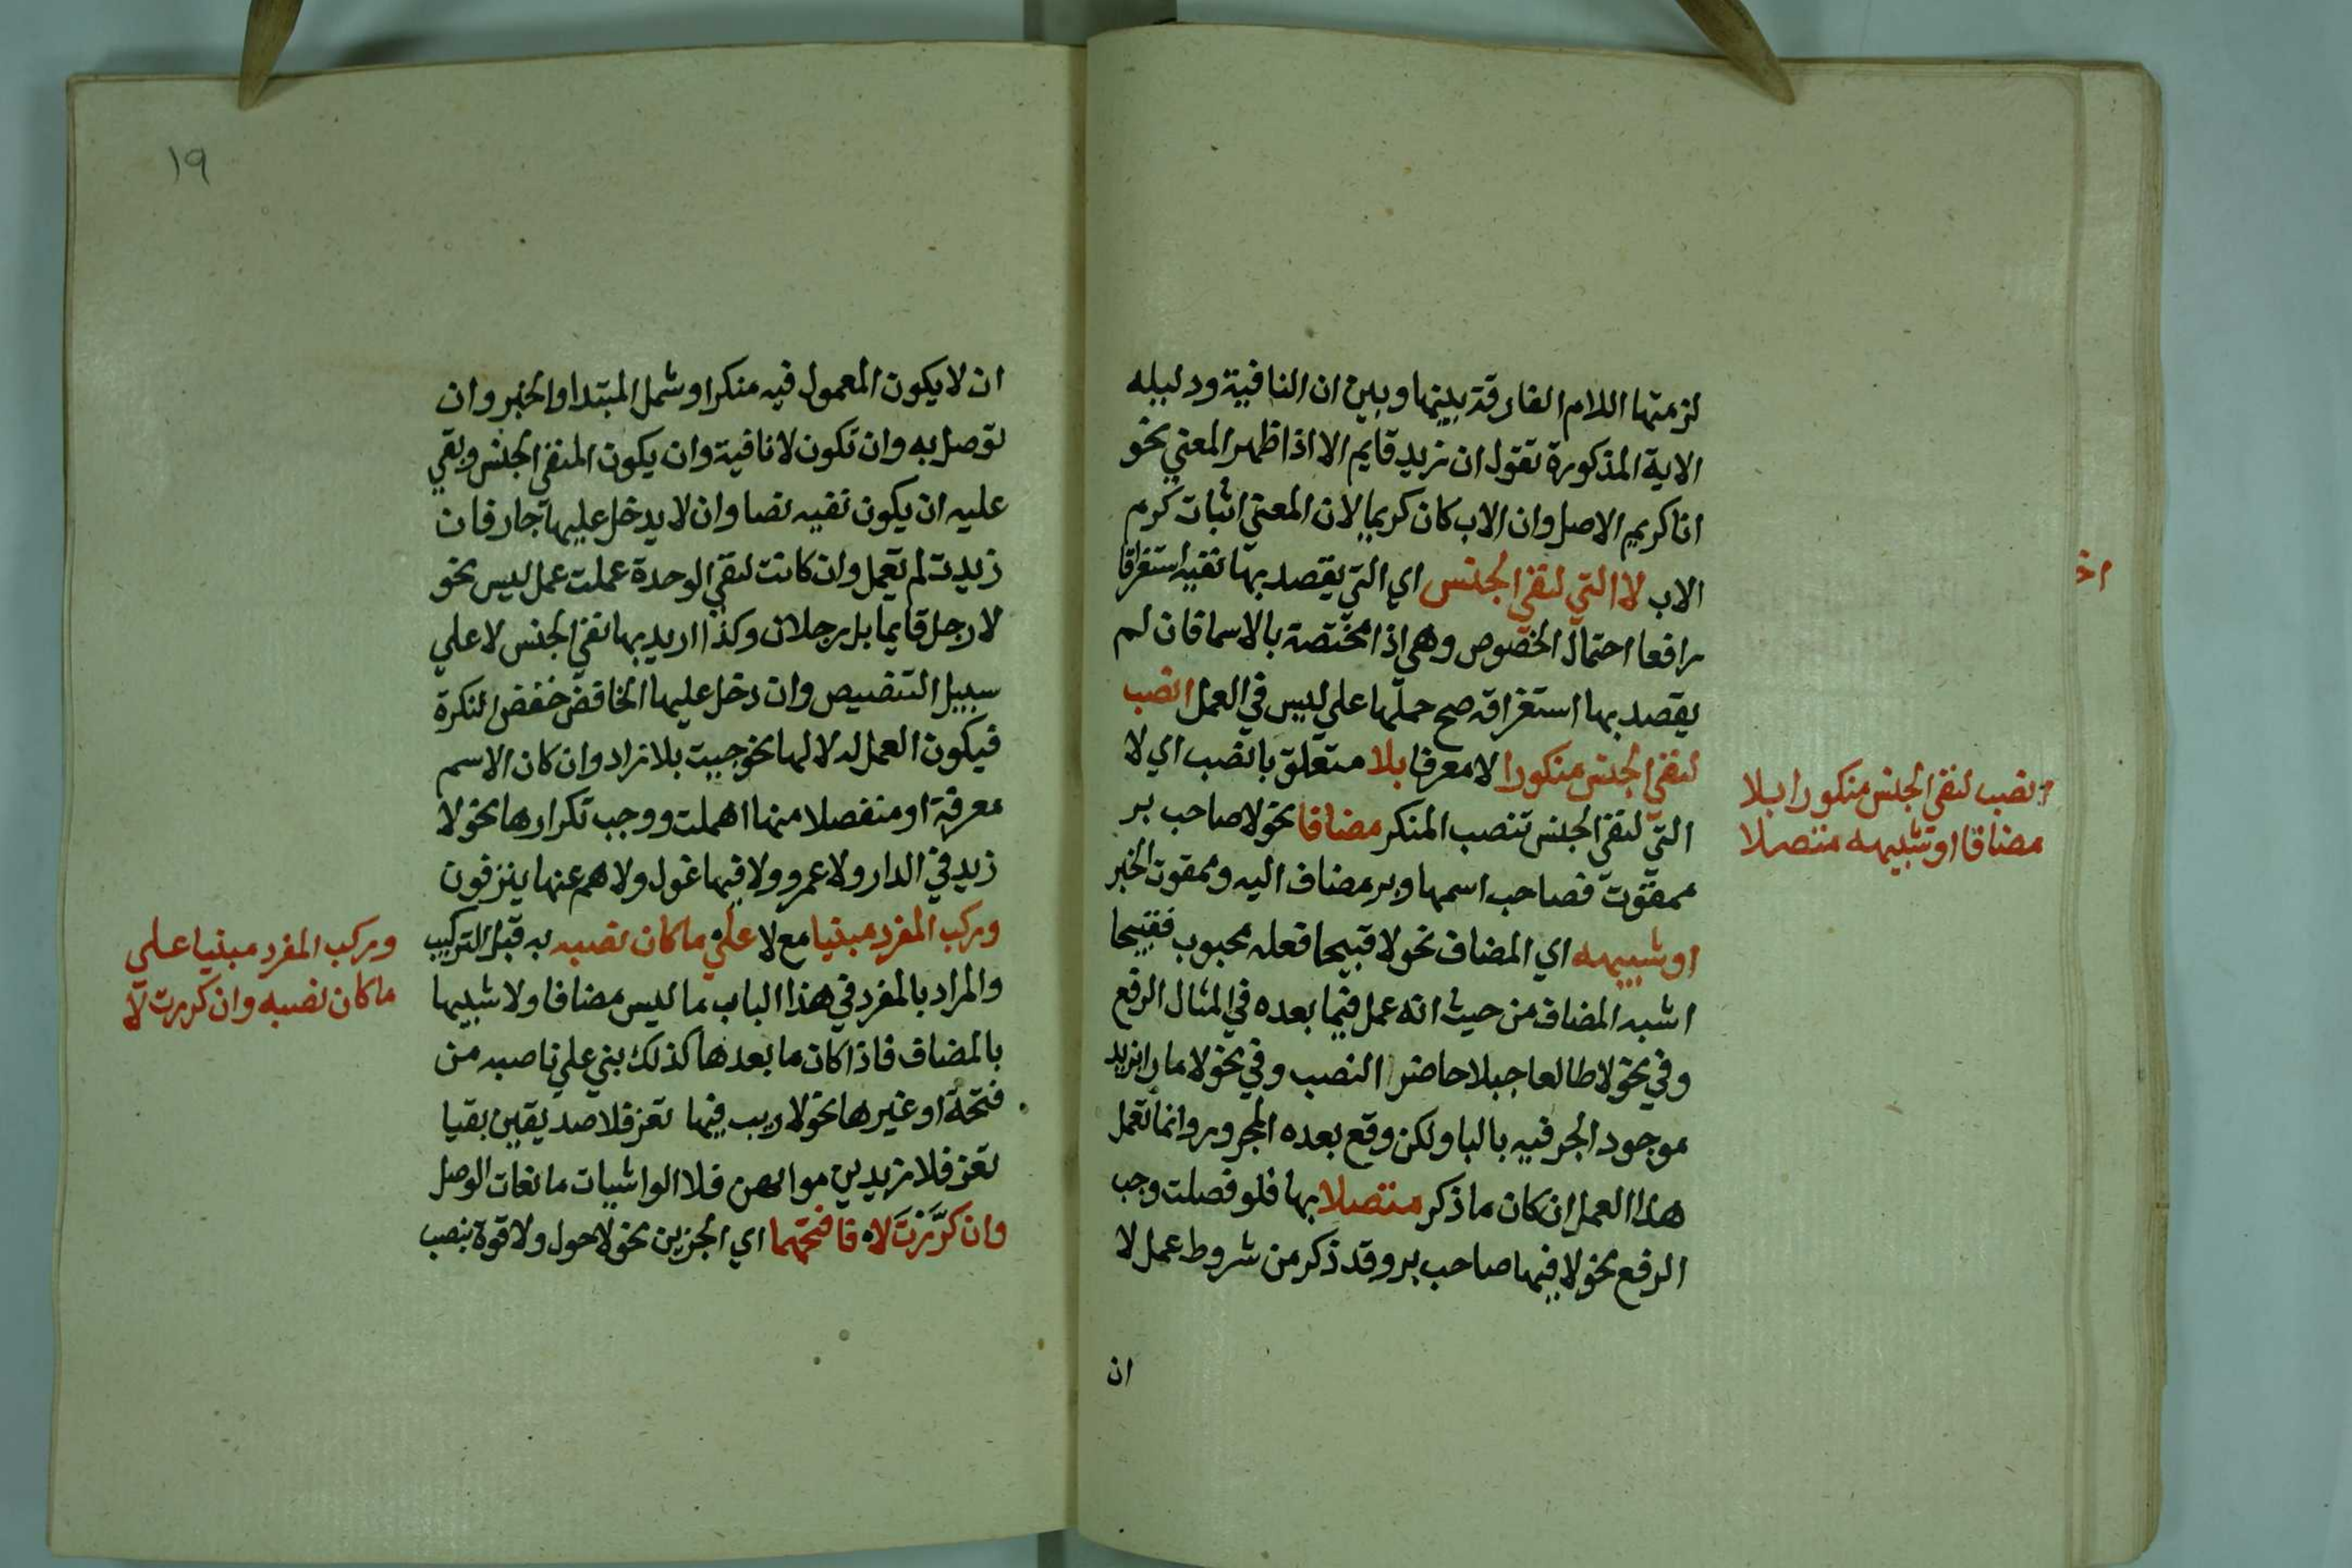 لزمتها اللام الفارقة بينها وبين ان النافية ودليله
الاية المذكورة تقول ان زيد قايم الا اذا ظهر المعني نحو
انا كريم الاصل وان الاب كان كريما لان المعني اثبات كرم
الاب لا التي لنفي الجنس اي التي يقصد بها نفيه استغراقا
رافعا احتمال الخصوص وهي اذا مختصة بالاسما فان لم
يقصد بها استغراقه صح حملها علي ليس في العمل انصب
لنفي الجنس منكورا لا معرفا بلا متعلق بانصب اي لا
التي لنفي الجنس تنصب المنكر مضافا نحو لا صاحب بر
ممقوت فصاحب اسمها وبر مضاف اليه وممقوت الخبر
او شبيهه اي المضاف نحو لا قبيحا فعله محبوب فقبيحا
اشبه المضاف من حيث انه عمل فيما بعده في المثال الرفع
وفي نحو لا طالعا جبلا حاضر النصب وفي نحو لا مارا بزيد
موجود الجر فيه بالبا ولكن وقع بعده المجرور وانما تعمل
هذا العمل ان كان ما ذكر متصلا بها فلو فصلت وجب
الرفع نحو لا فيها صاحب بر وقد ذكر من شروط عمل لا
ان
انصب لنفي الجنس منكورا بلا
مضافا او شبيهه متصلا
اخ
١٩
ان لا يكون المعمول فيه منكرا وشمل المبتدا والخبر وان
توصل به وان تكون لا نافية وان يكون المنفي الجنس وبقي
عليه ان يكون نفيه نصا وان لا يدخل عليها جار فان
زيدت لم تعمل وان كانت لنفي الوحدة عملت عمل ليس نحو
لا رجل قايما بل رجلان وكذا اريد بها نفي الجنس لا علي
سبيل التنصيص وان دخل عليها الخافض خفض النكرة
فيكون العمل له لا لها نحو جيت بلا زاد وان كان الاسم
معرفة او منفصلا منها اهملت ووجب تكرارها نحو لا
زيد في الدار ولا عمرو ولا فيها غول ولا هم عنها ينزفون
وركب المفرد مبنيا مع لا علي ما كان نصبه به قبل التركيب
والمراد بالمفرد في هذا الباب ما ليس مضافا ولا شبيها
بالمضاف فاذا كان ما بعدها كذلك بني علي ناصبه من
فتحة او غيرها نحو لا ريب فيها تعز فلا صديقين بقيا
تعز فلا مزيدين فلا الواشيات مانعات الوصل
وان كَرَّرْتَ لا فافتحهما اي الجزين نحو لا حول ولا قوة بنصب
وركب المفرد مبنيا علي
ما كان نصبه وان كررت لا